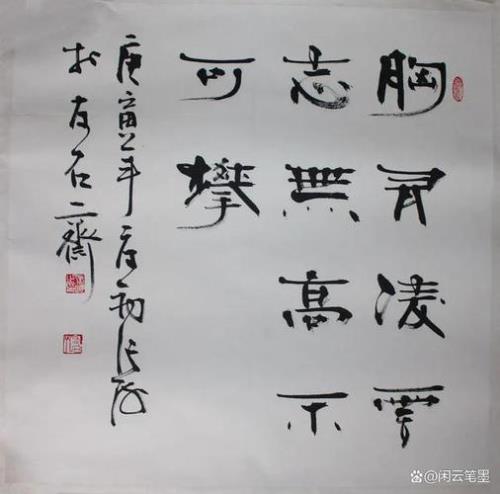 胸有凌雲
志無高不
可攀
庚寅年夏初
於友石齋
@闲云笔墨